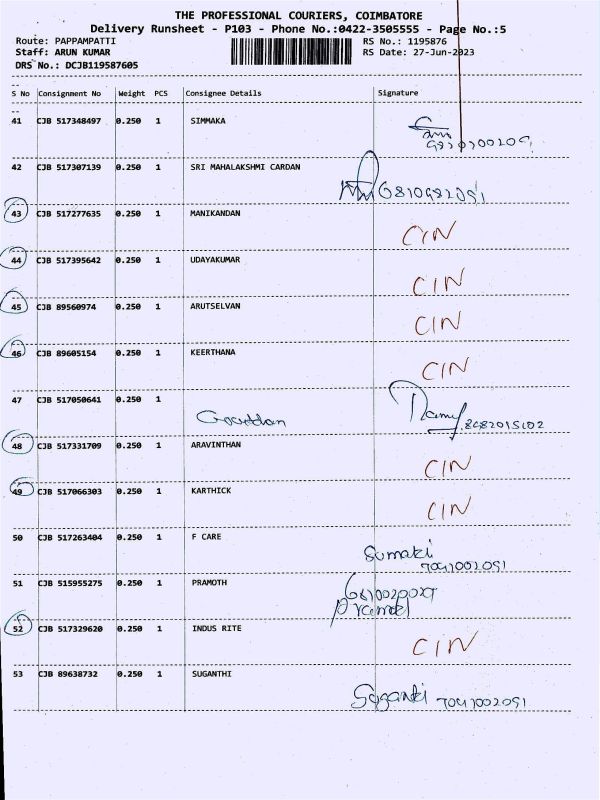 THE PROFESSIONAL COURIERS, COIMBATORE
Delivery Runsheet - P103 - Phone No.:0422-3505555 - Page No.:5
Route: PAPPAMPATTI RS No.: 1195876
Staff: ARUN KUMAR RS Date: 27-Jun-2023
DRS No.: DCJB119587605
S No Consignment No Weight PCS Consignee Details Signature
41 CJB 517348497 0.250 1 SIMMAKA
42 CJB 517307139 0.250 1 SRI MAHALAKSHMI CARDAN
43 CJB 517277635 0.250 1 MANIKANDAN CIN
44 CJB 517395642 0.250 1 UDAYAKUMAR CIN
45 CJB 89560974 0.250 1 ARUTSELVAN CIN
46 CJB 89605154 0.250 1 KEERTHANA CIN
47 CJB 517050641 0.250 1
48 CJB 517331709 0.250 1 ARAVINTHAN CIN
49 CJB 517066303 0.250 1 KARTHICK CIN
50 CJB 517263404 0.250 1 F CARE
Sumaki
7041002051
51 CJB 515955275 0.250 1 PRAMOTH
52 CJB 517329620 0.250 1 INDUS RITE CIN
53 CJB 89638732 0.250 1 SUGANTHI
7041002051